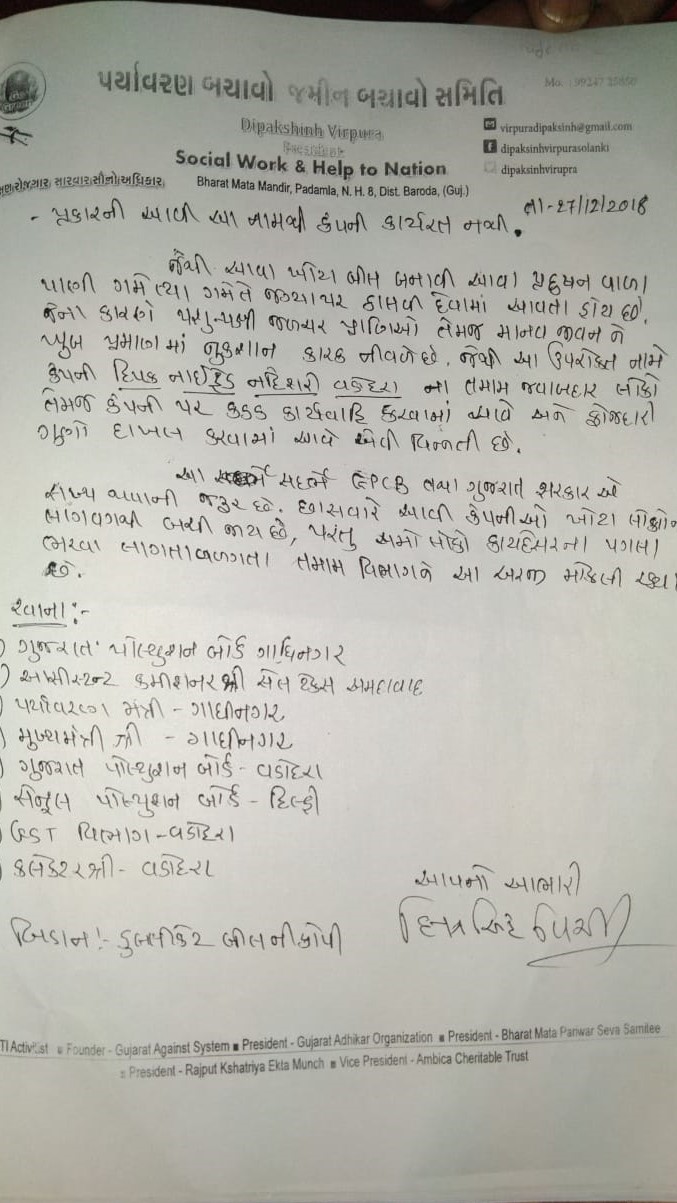 પર્યાવરણ બચાવો જમીન બચાવો સમિતિ
Mo. : 99247 25850
Dipakshinh Virpura
President
Social Work & Help to Nation
Bharat Mata Mandir, Padamla, N. H. 8, Dist. Baroda, (Guj.)
virpuradipaksinh@gmail.com
dipaksinhvirpurasolanki
dipaksinhvirupra
રોજગાર સારવાર સૌનો અધિકાર
તા-27/12/2018
- પ્રકારની આવી આ નામથી કંપની કાર્યરત નથી.
જેથી આવા ખોટા બીલ બનાવી આવા પ્રદુષન વાળા
પાણી ગમે ત્યા ગમે તે જગ્યા પર ઠાલવી દેવામાં આવતા હોય છે.
જેના કારણે પશુ-પક્ષી જળચર પ્રાણિઓ તેમજ માનવ જીવન ને
ખુબ પ્રમાણ માં નુકશાન કારક નીવળે છે. જેથી આ ઉપરોક્ત નામે
કંપની દિપક નાઈટ્રેડ નદિશરી વડોદરા ના તમામ જવાબદાર લોકો
તેમજ કંપની પર કડક કાર્યવાહિ કરવામાં આવે અને ફોજદારી
ગુનો દાખલ કરવામાં આવે એવી વિનતી છે.
આ સદર્ભે GPCB તથા ગુજરાત સરકાર એ
થવાની જરૂર છે. છાસવારે આવી કંપનીઓ ખોટા લોકોન
લાગવગથી બચી જાય છે, પરંતુ અમો લોકો કાયદેસરના પગલા
ભરવા લાગતાવળગતા તમામ વિભાગને આ અરજી મોકલી રહ્યા
છે.
રવાના:-
ગુજરાત પોલ્યુશન બોર્ડ ગાધિનગર
આસીસ્ટન્ટ કમીશનર શ્રી સેલ ટેક્સ અમદાવાદ
પર્યાવરણ મંત્રી - ગાધીનગર
મુખ્યમંત્રી શ્રી - ગાધીનગર
ગુજરાત પોલ્યુશન બોર્ડ - વડોદરા
સેન્ટ્રલ પોલ્યુશન બોર્ડ - દિલ્હી
GST વિભાગ - વડોદરા
કલેકટર શ્રી - વડોદરા
આપનો આભારી
બિડાન:- ડુબલીકેટ બીલ ની કોપી
TI Activist ■ Founder - Gujarat Against System ■ President - Gujarat Adhikar Organization ■ President - Bharat Mata Pariwar Seva Samitee
■ President - Rajput Kshatriya Ekta Munch ■ Vice President - Ambica Cheritable Trust